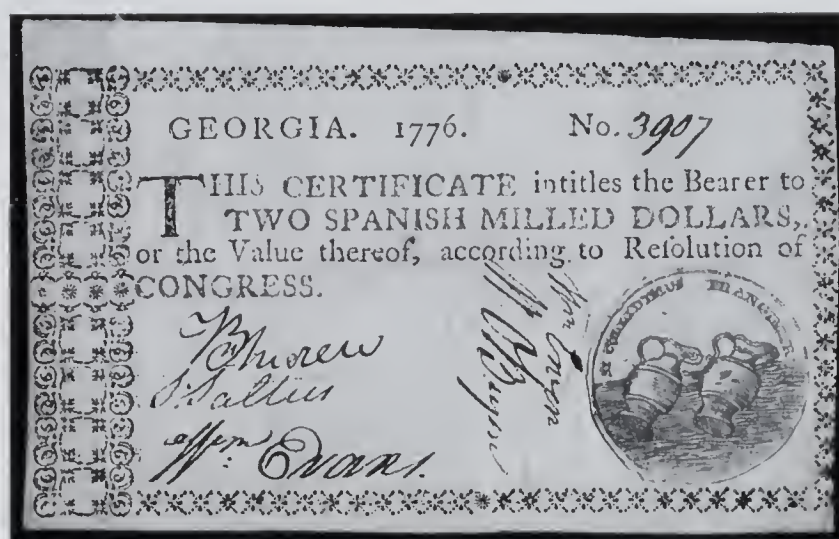 GEORGIA. 1776. No. 3907
THIS CERTIFICATE intitles the Bearer to
TWO SPANISH MILLED DOLLARS,
or the Value thereof, according to Reſolution of
CONGRESS.
Wm Evans.
SI COLLIDIMUS FRANGIMUR